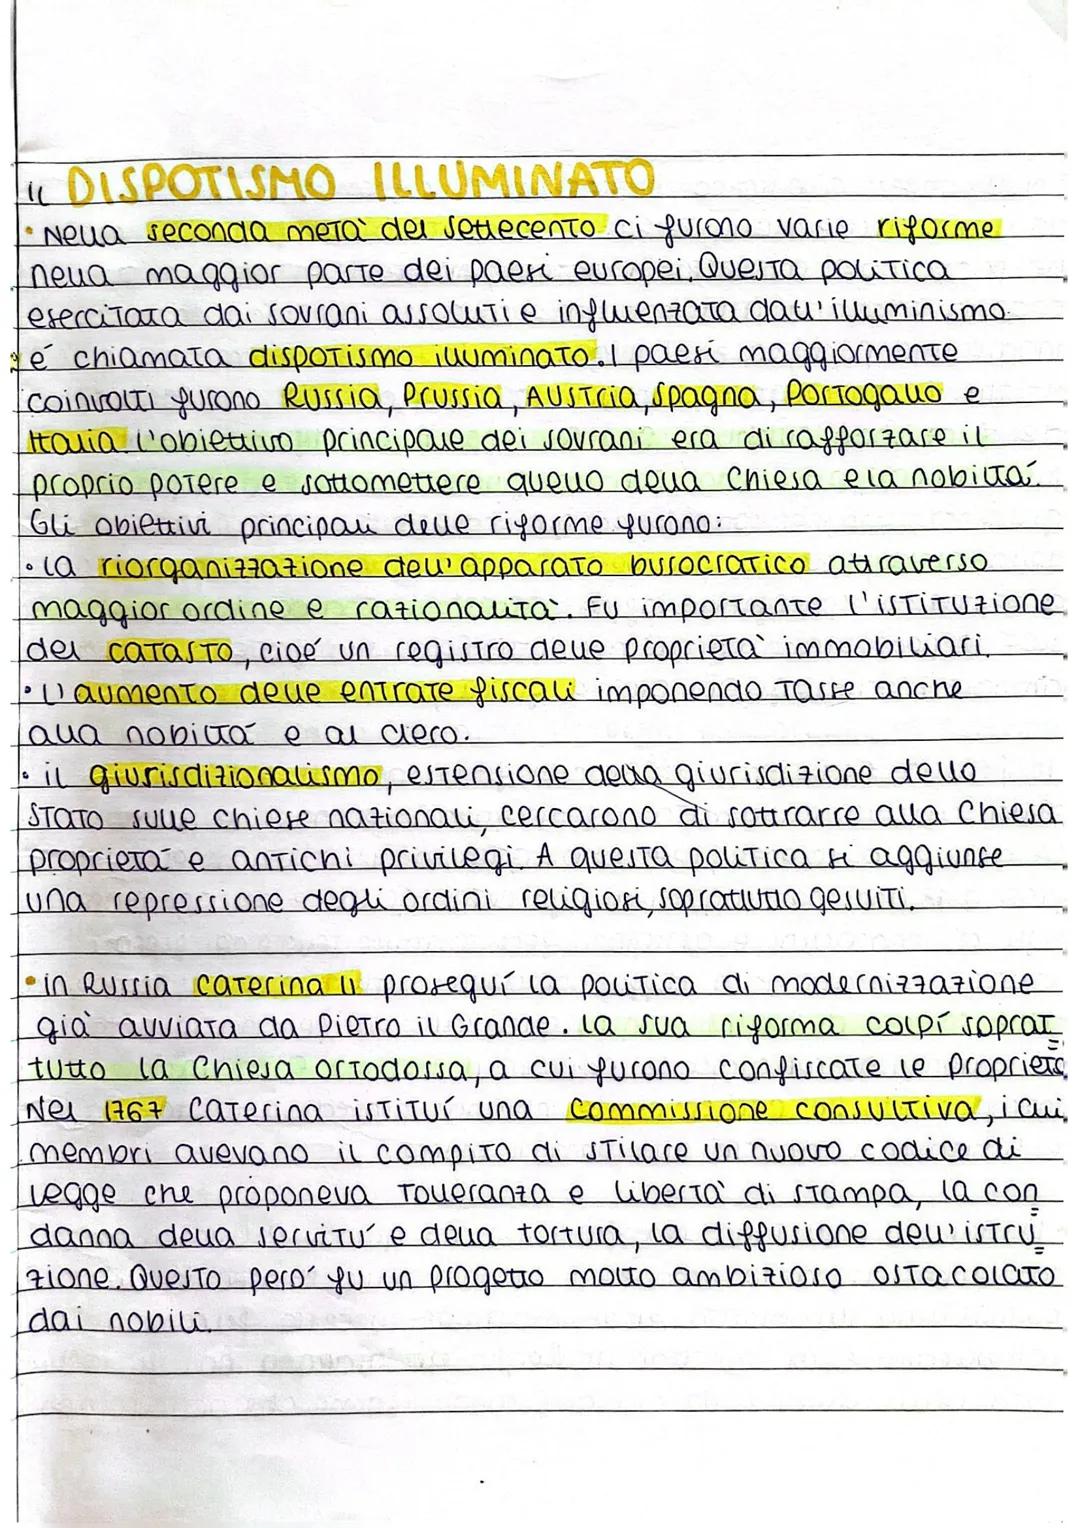 il DISPOTISMO ILLUMINATO
• Nella seconda metà del settecento ci furono varie riforme
nella maggior parte dei paesi europei. Questa politica
esercitata dai sovrani assoluti e influenzata dall'illuminismo
é chiamata dispotismo illuminato. I paesi maggiormente
coinvolti furono Russia, Prussia, Austria, Spagna, Portogallo e
Italia. L'obiettivo principale dei sovrani era di rafforzare il
proprio potere e sottomettere quello della Chiesa e la nobiltá.
Gli obiettivi principali delle riforme furono:
• la riorganizzazione dell'apparato burocratico attraverso
maggior ordine e razionalità. Fu importante l'istituzione
del catasto, cioé un registro delle proprietà immobiliari.
• L'aumento delle entrate fiscali imponendo tasse anche
alla nobiltá e al clero.
• il giurisdizionalismo, estensione della giurisdizione dello
Stato sulle chiese nazionali, cercarono di sottrarre alla Chiesa
proprietá e antichi privilegi. A questa politica si aggiunse
una repressione degli ordini religiosi, soprattutto gesuiti.
• in Russia Caterina II proseguí la politica di modernizzazione
già avviata da Pietro il Grande. La sua riforma colpí soprat=
tutto la Chiesa ortodossa, a cui furono confiscate le proprietà.
Nel 1767 Caterina istituí una commissione consultiva, i cui
membri avevano il compito di stilare un nuovo codice di
legge che proponeva tolleranza e libertà di stampa, la con=
danna della servitú e della tortura, la diffusione dell'istru=
zione. Questo peró fu un progetto molto ambizioso ostacolato
dai nobili.